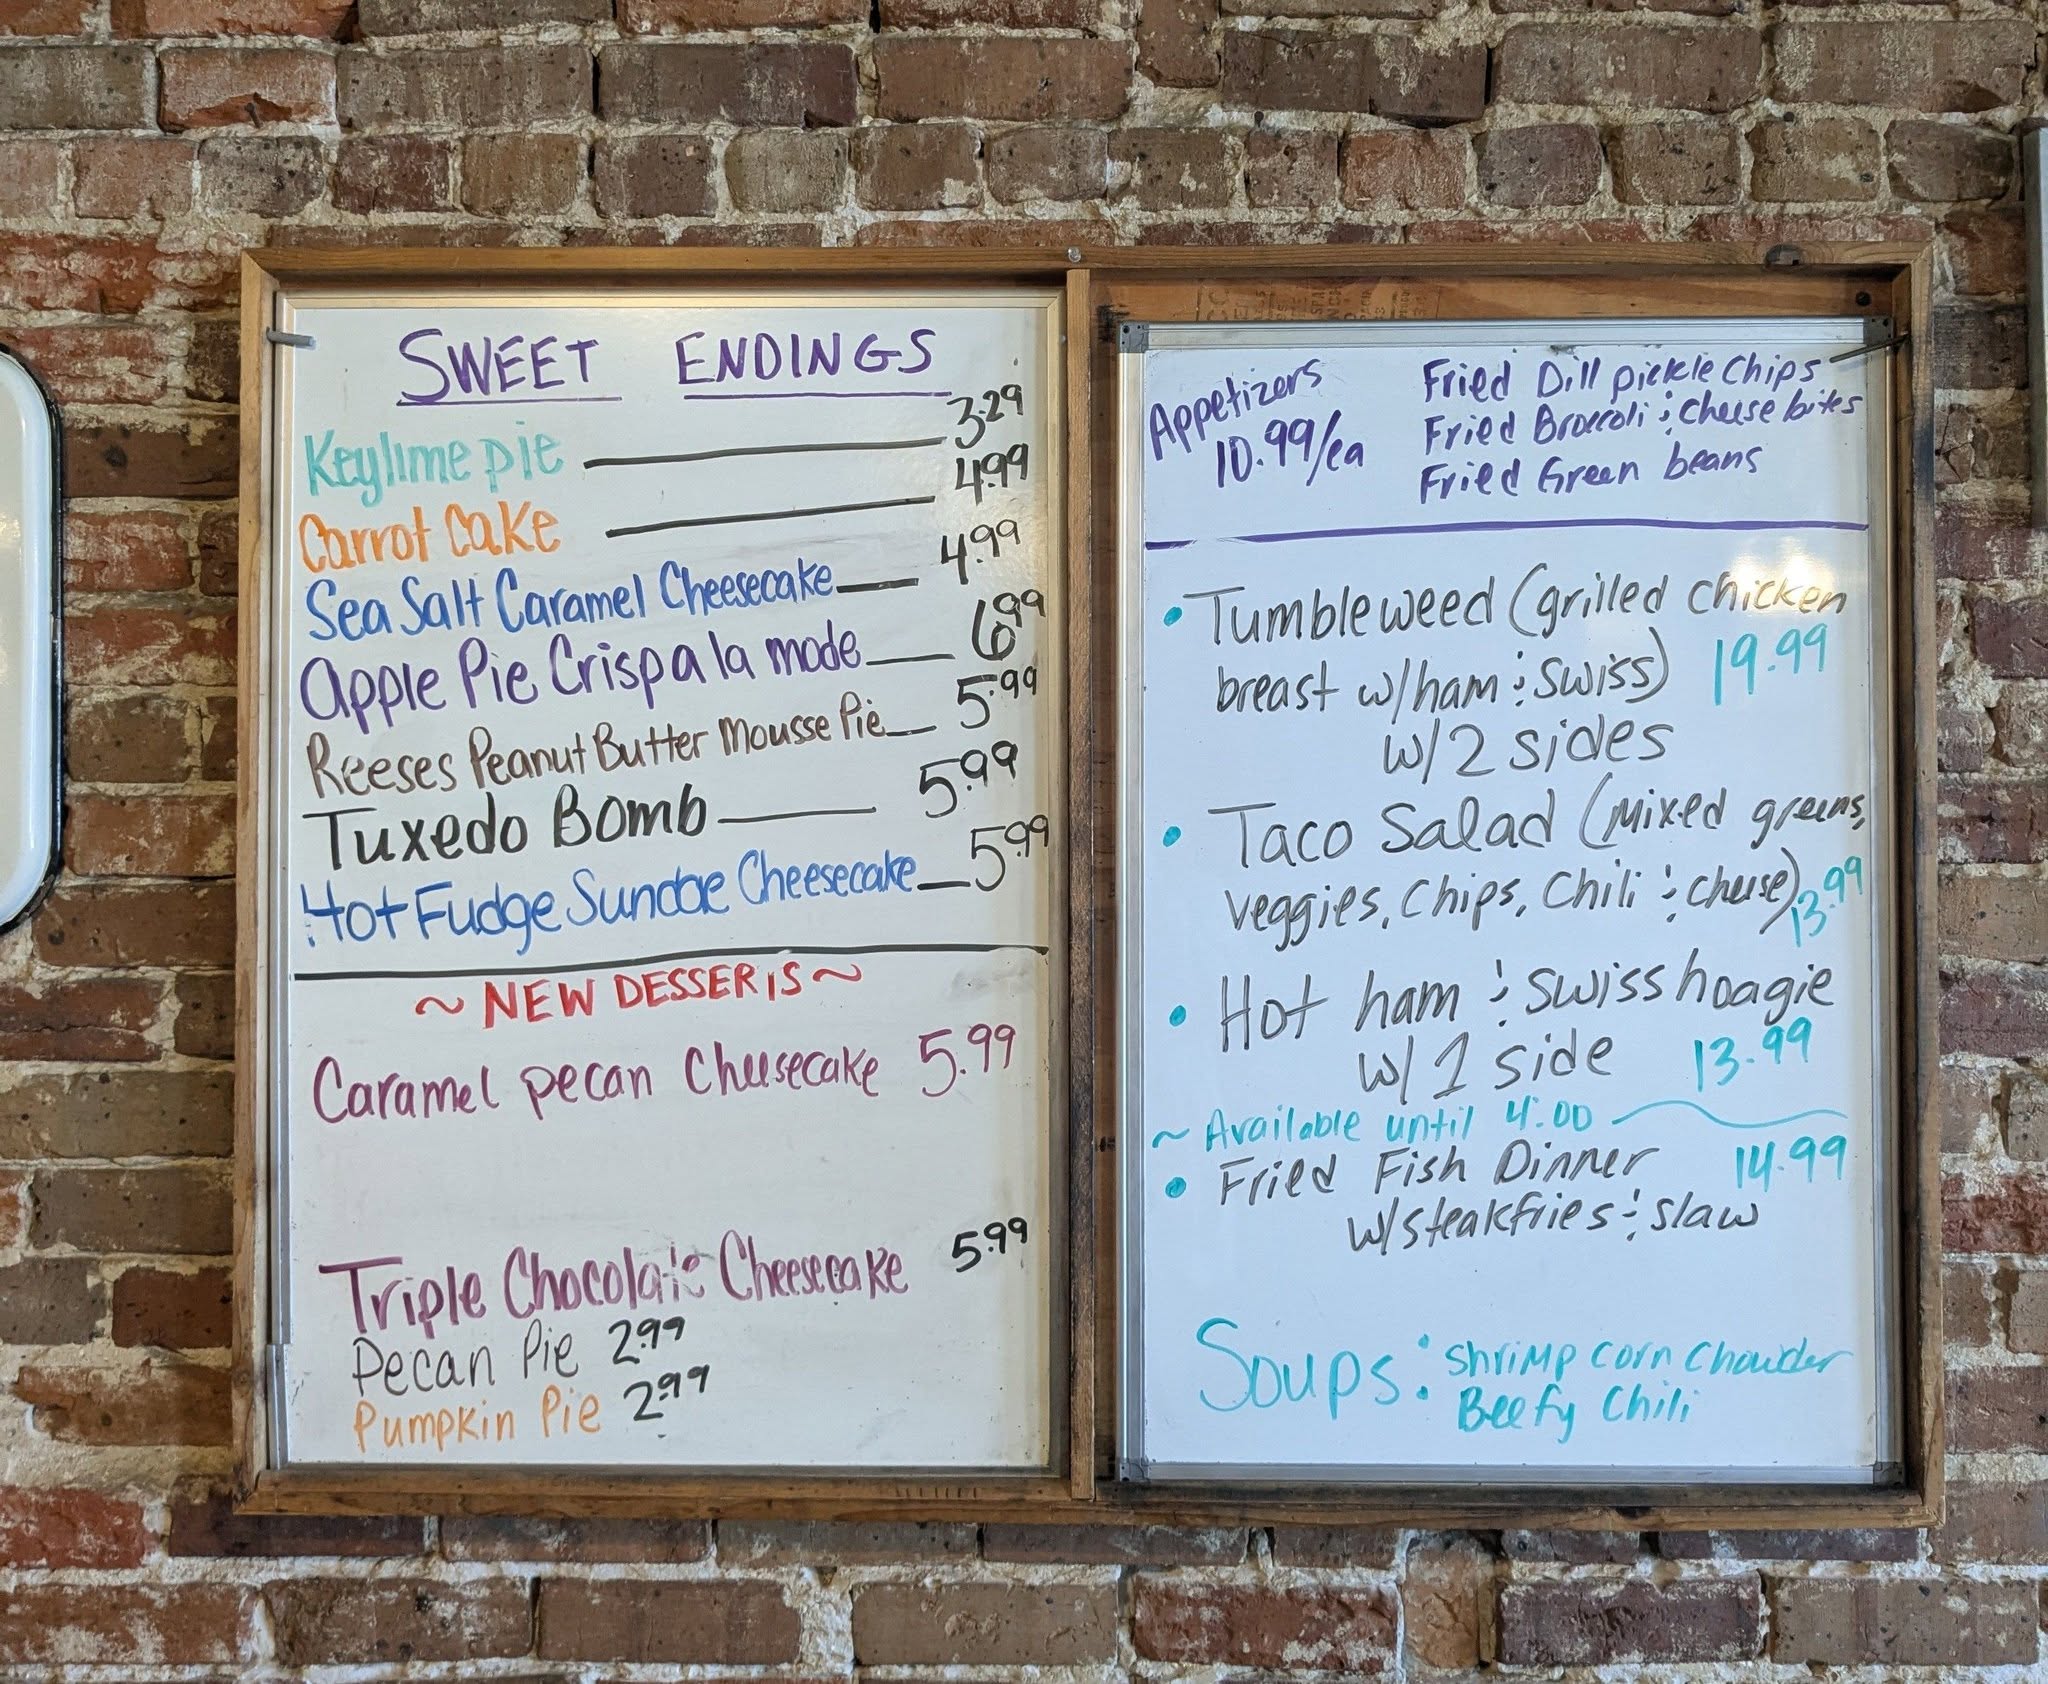 SWEET ENDINGS
Keylime pie 3.29
Carrot Cake 4.99
Sea Salt Caramel Cheesecake 4.99
Apple Pie Crisp a la mode 6.99
Reeses Peanut Butter Mousse Pie 5.99
Tuxedo Bomb 5.99
Hot Fudge Sundae Cheesecake 5.99
~ NEW DESSERTS ~
Caramel pecan cheesecake 5.99
Triple Chocolate Cheesecake 5.99
Pecan Pie 2.99
Pumpkin Pie 2.99
Appetizers
10.99/ea
Fried Dill pickle Chips
Fried Broccoli & cheese bites
Fried Green beans
• Tumbleweed (grilled chicken
breast w/ham & swiss) 19.99
w/2 sides
• Taco Salad (Mixed greens,
veggies, Chips, Chili & cheese) 13.99
• Hot ham & swiss hoagie
w/1 side 13.99
~ Available until 4:00
• Fried Fish Dinner 14.99
w/steakfries & slaw
Soups: Shrimp corn Chowder
Beefy Chili